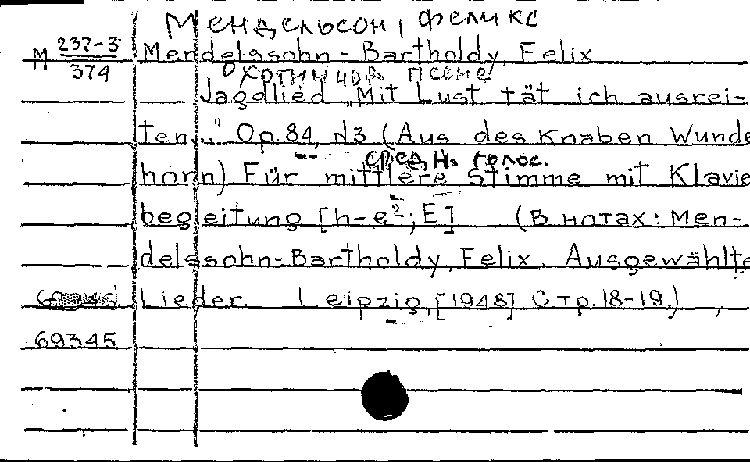 Мендельсон, Феликс
М 237-3/374 Mendelssohn-Bartholdy, Felix
Охотничья песня
Jagdlied „Mit Lust tät ich ausrei-
ten..." Op.84, N3 (Aus des Knaben Wunde
средн. голос.
horn) Für mittlere Stimme mit Klavie
begleitung [h-e²; E] (В нотах: Men-
delssohn-Bartholdy, Felix. Ausgewählte
Lieder. Leipzig, [1948] Стр.18-19.)
69345